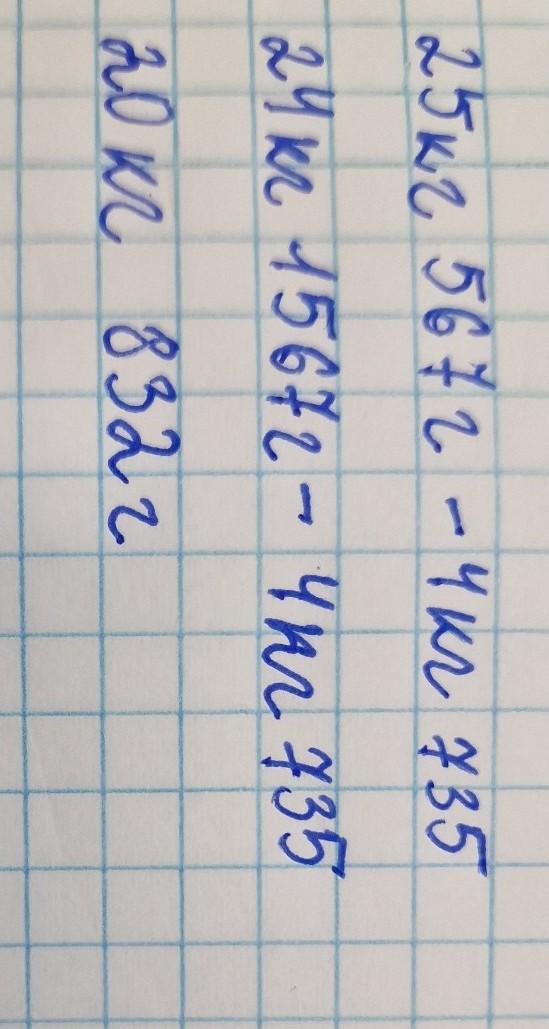 25кг 567г - 4кг 735
24кг 1567г - 4кг 735
20кг 832г